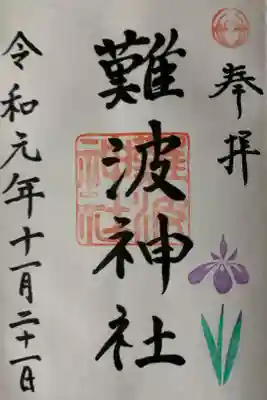 奉拝
難波神社
令和元年十一月二十一日